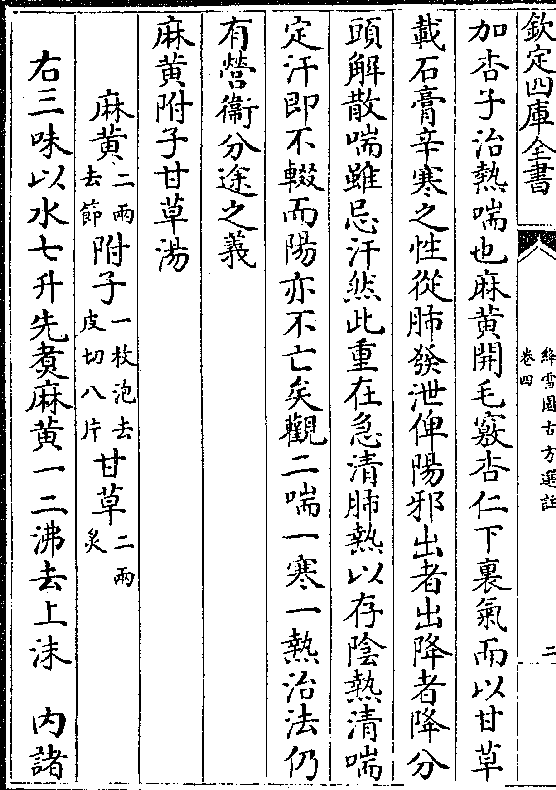 欽定四庫全書
絳雪園古方選註
卷四
二
加杏子治熱喘也麻黃開毛竅杏仁下裏氣而以甘草
載石膏辛寒之性從肺發泄俾陽邪出者出降者降分
頭解散喘雖忌汗然此重在急清肺熱以存陰熱清喘
定汗即不輟而陽亦不亡矣觀二喘一寒一熱治法仍
有營衞分途之義
麻黃附子甘草湯
麻黃二兩去節 附子一枚泡去皮切八片 甘草二兩炙
右三味以水七升先煑麻黃一二沸去上沫 内諸